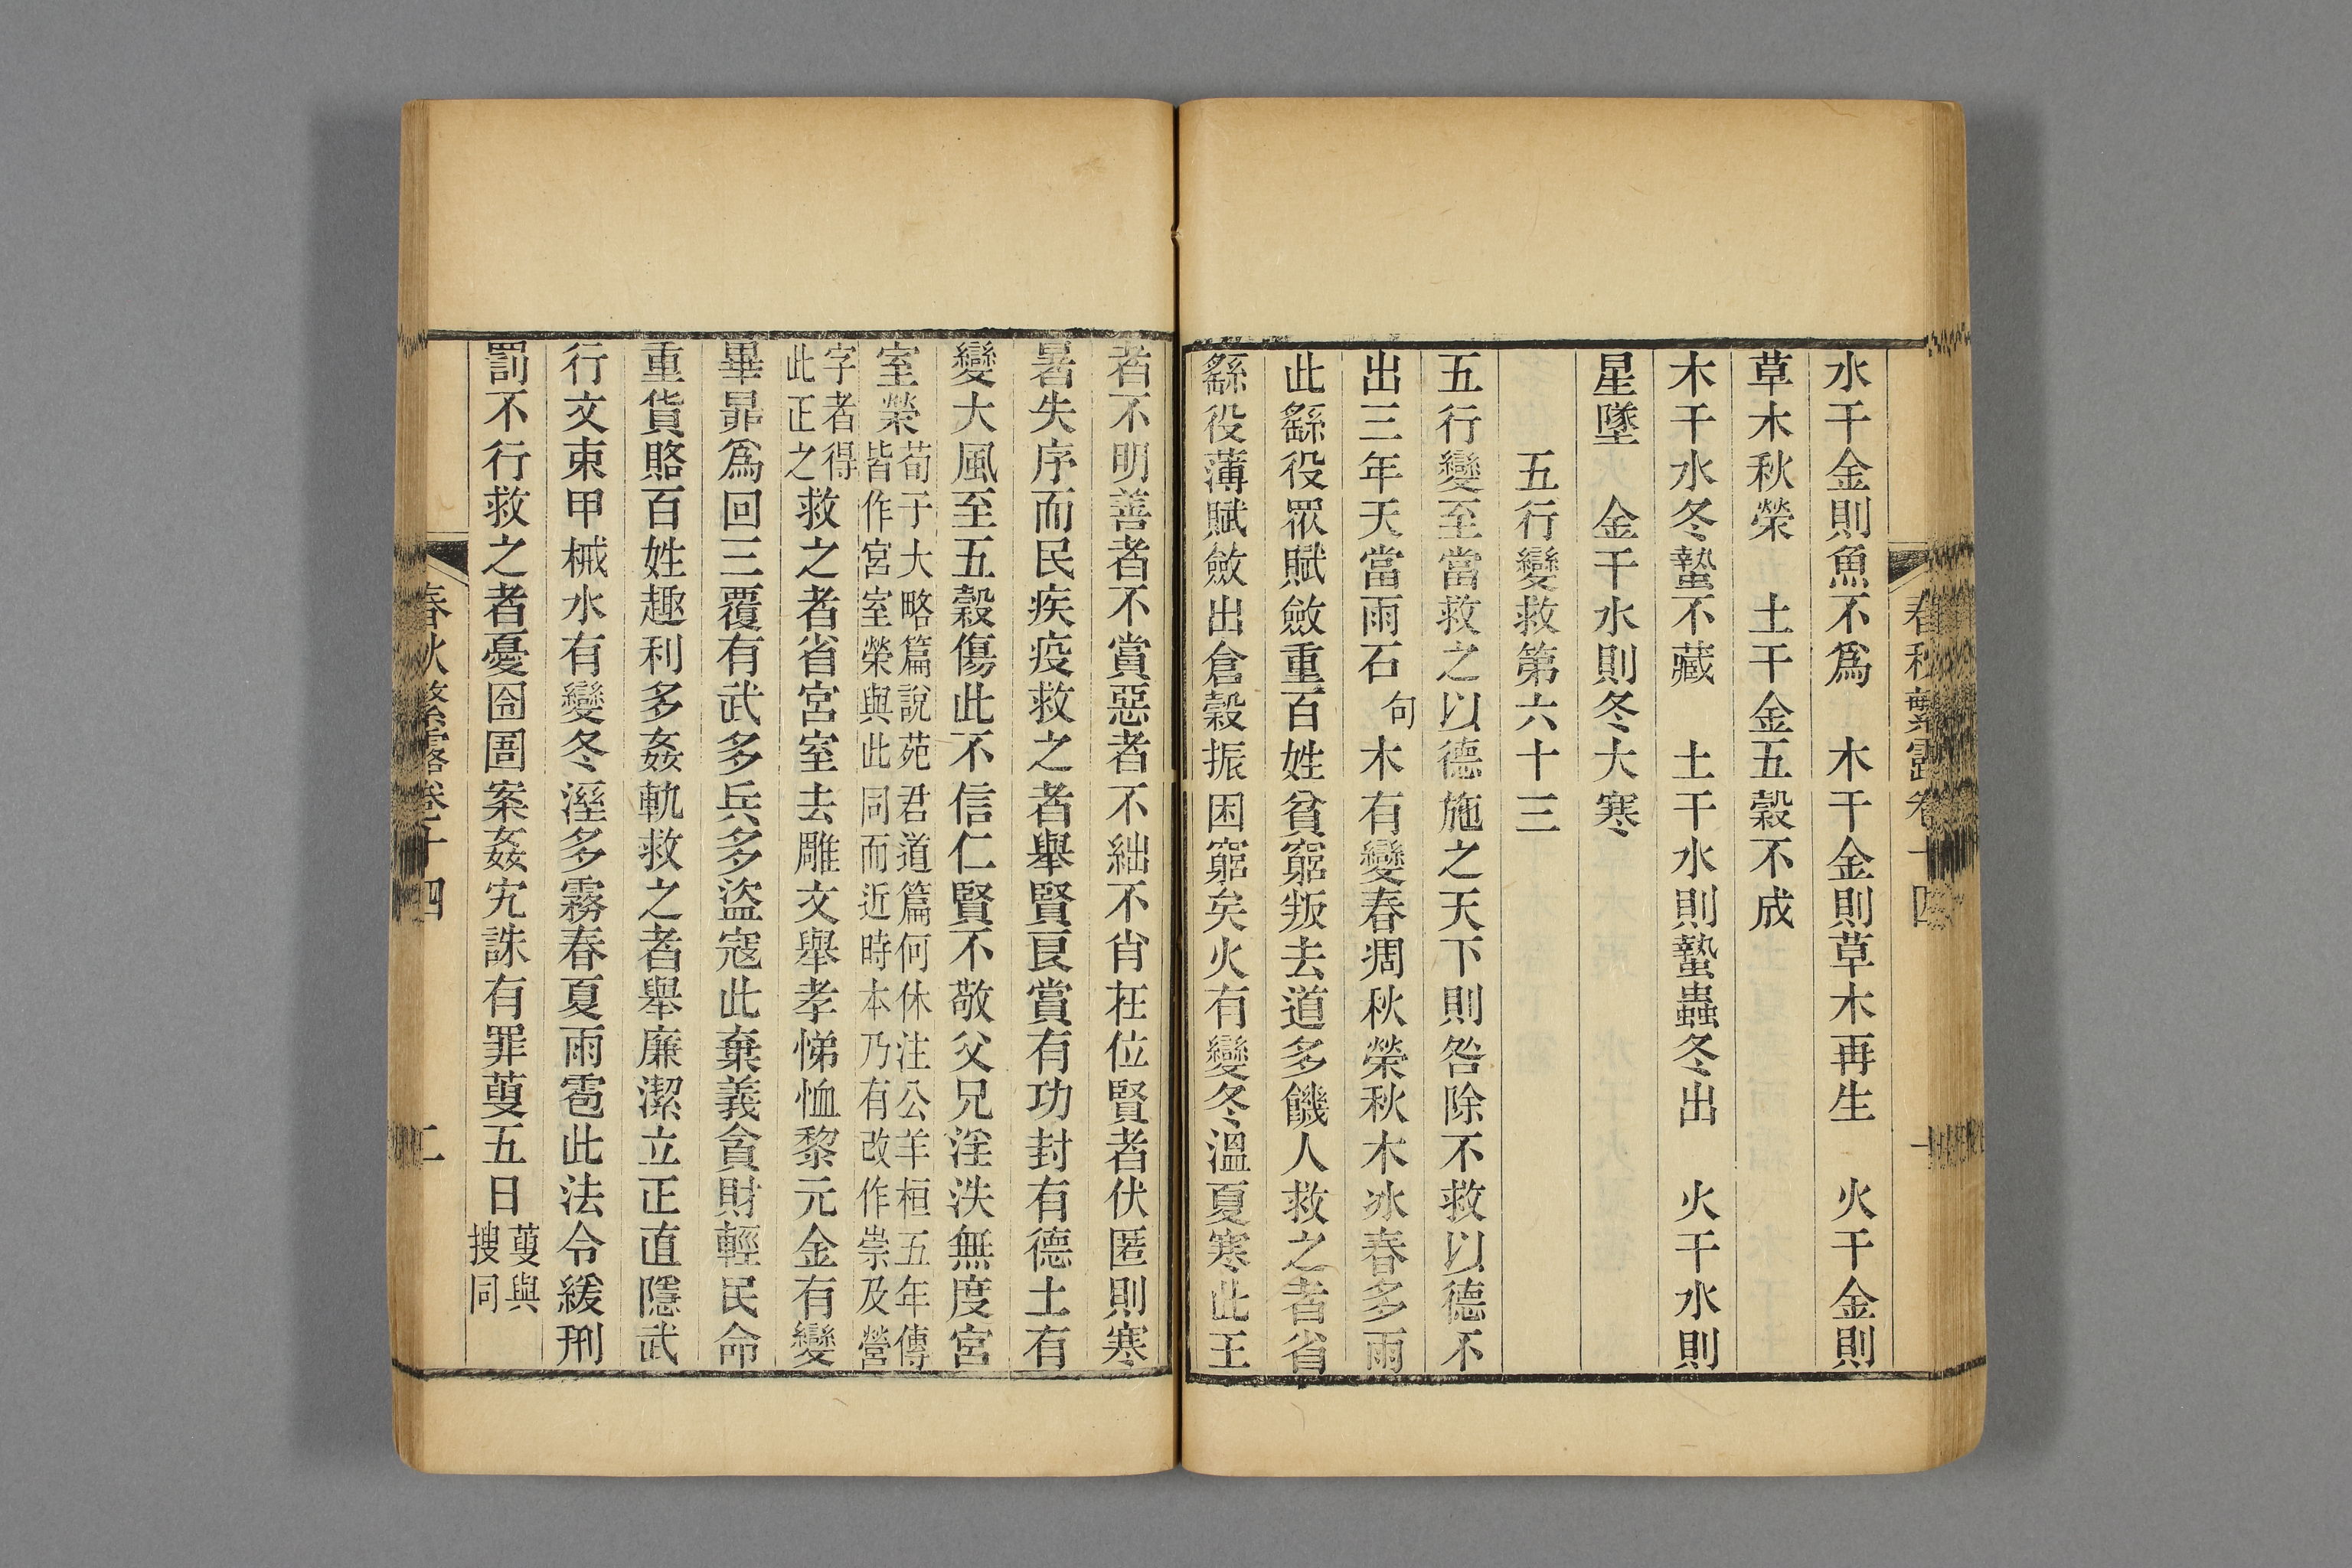 水干金則魚不爲　木干金則草木再生　火干金則
草木秋榮　土干金五穀不成
木干水冬蟄不藏　土干水則蟄蟲冬出　火干水則
星墜　金干水則冬大寒
五行變救第六十三
五行變至當救之以德施之天下則咎除不救以德不
出三年天當雨石句木有變春凋秋榮秋木冰春多雨
此繇役眾賦斂重百姓貧窮叛去道多饑人救之者省
繇役薄賦斂出倉穀振困窮矣火有變冬溫夏寒此王
者不明善者不賞惡者不絀不肖在位賢者伏匿則寒
暑失序而民疾疫救之者舉賢良賞有功封有德土有
變大風至五穀傷此不信仁賢不敬父兄淫泆無度宮
室榮荀子大略篇說苑君道篇何休注公羊桓五年傳
皆作宮室榮與此同而近時本乃有改作崇及營
字者得
此正之救之者省宮室去雕文舉孝悌恤黎元金有變
畢昴爲回三覆有武多兵多盜寇此棄義貪財輕民命
重貨賂百姓趣利多姦軌救之者舉廉潔立正直隱武
行文束甲械水有變冬溼多霧春夏雨雹此法令緩刑
罰不行救之者憂囹圄案姦宄誅有罪蓃五日蓃與
搜同
春秋繁露卷十四
二